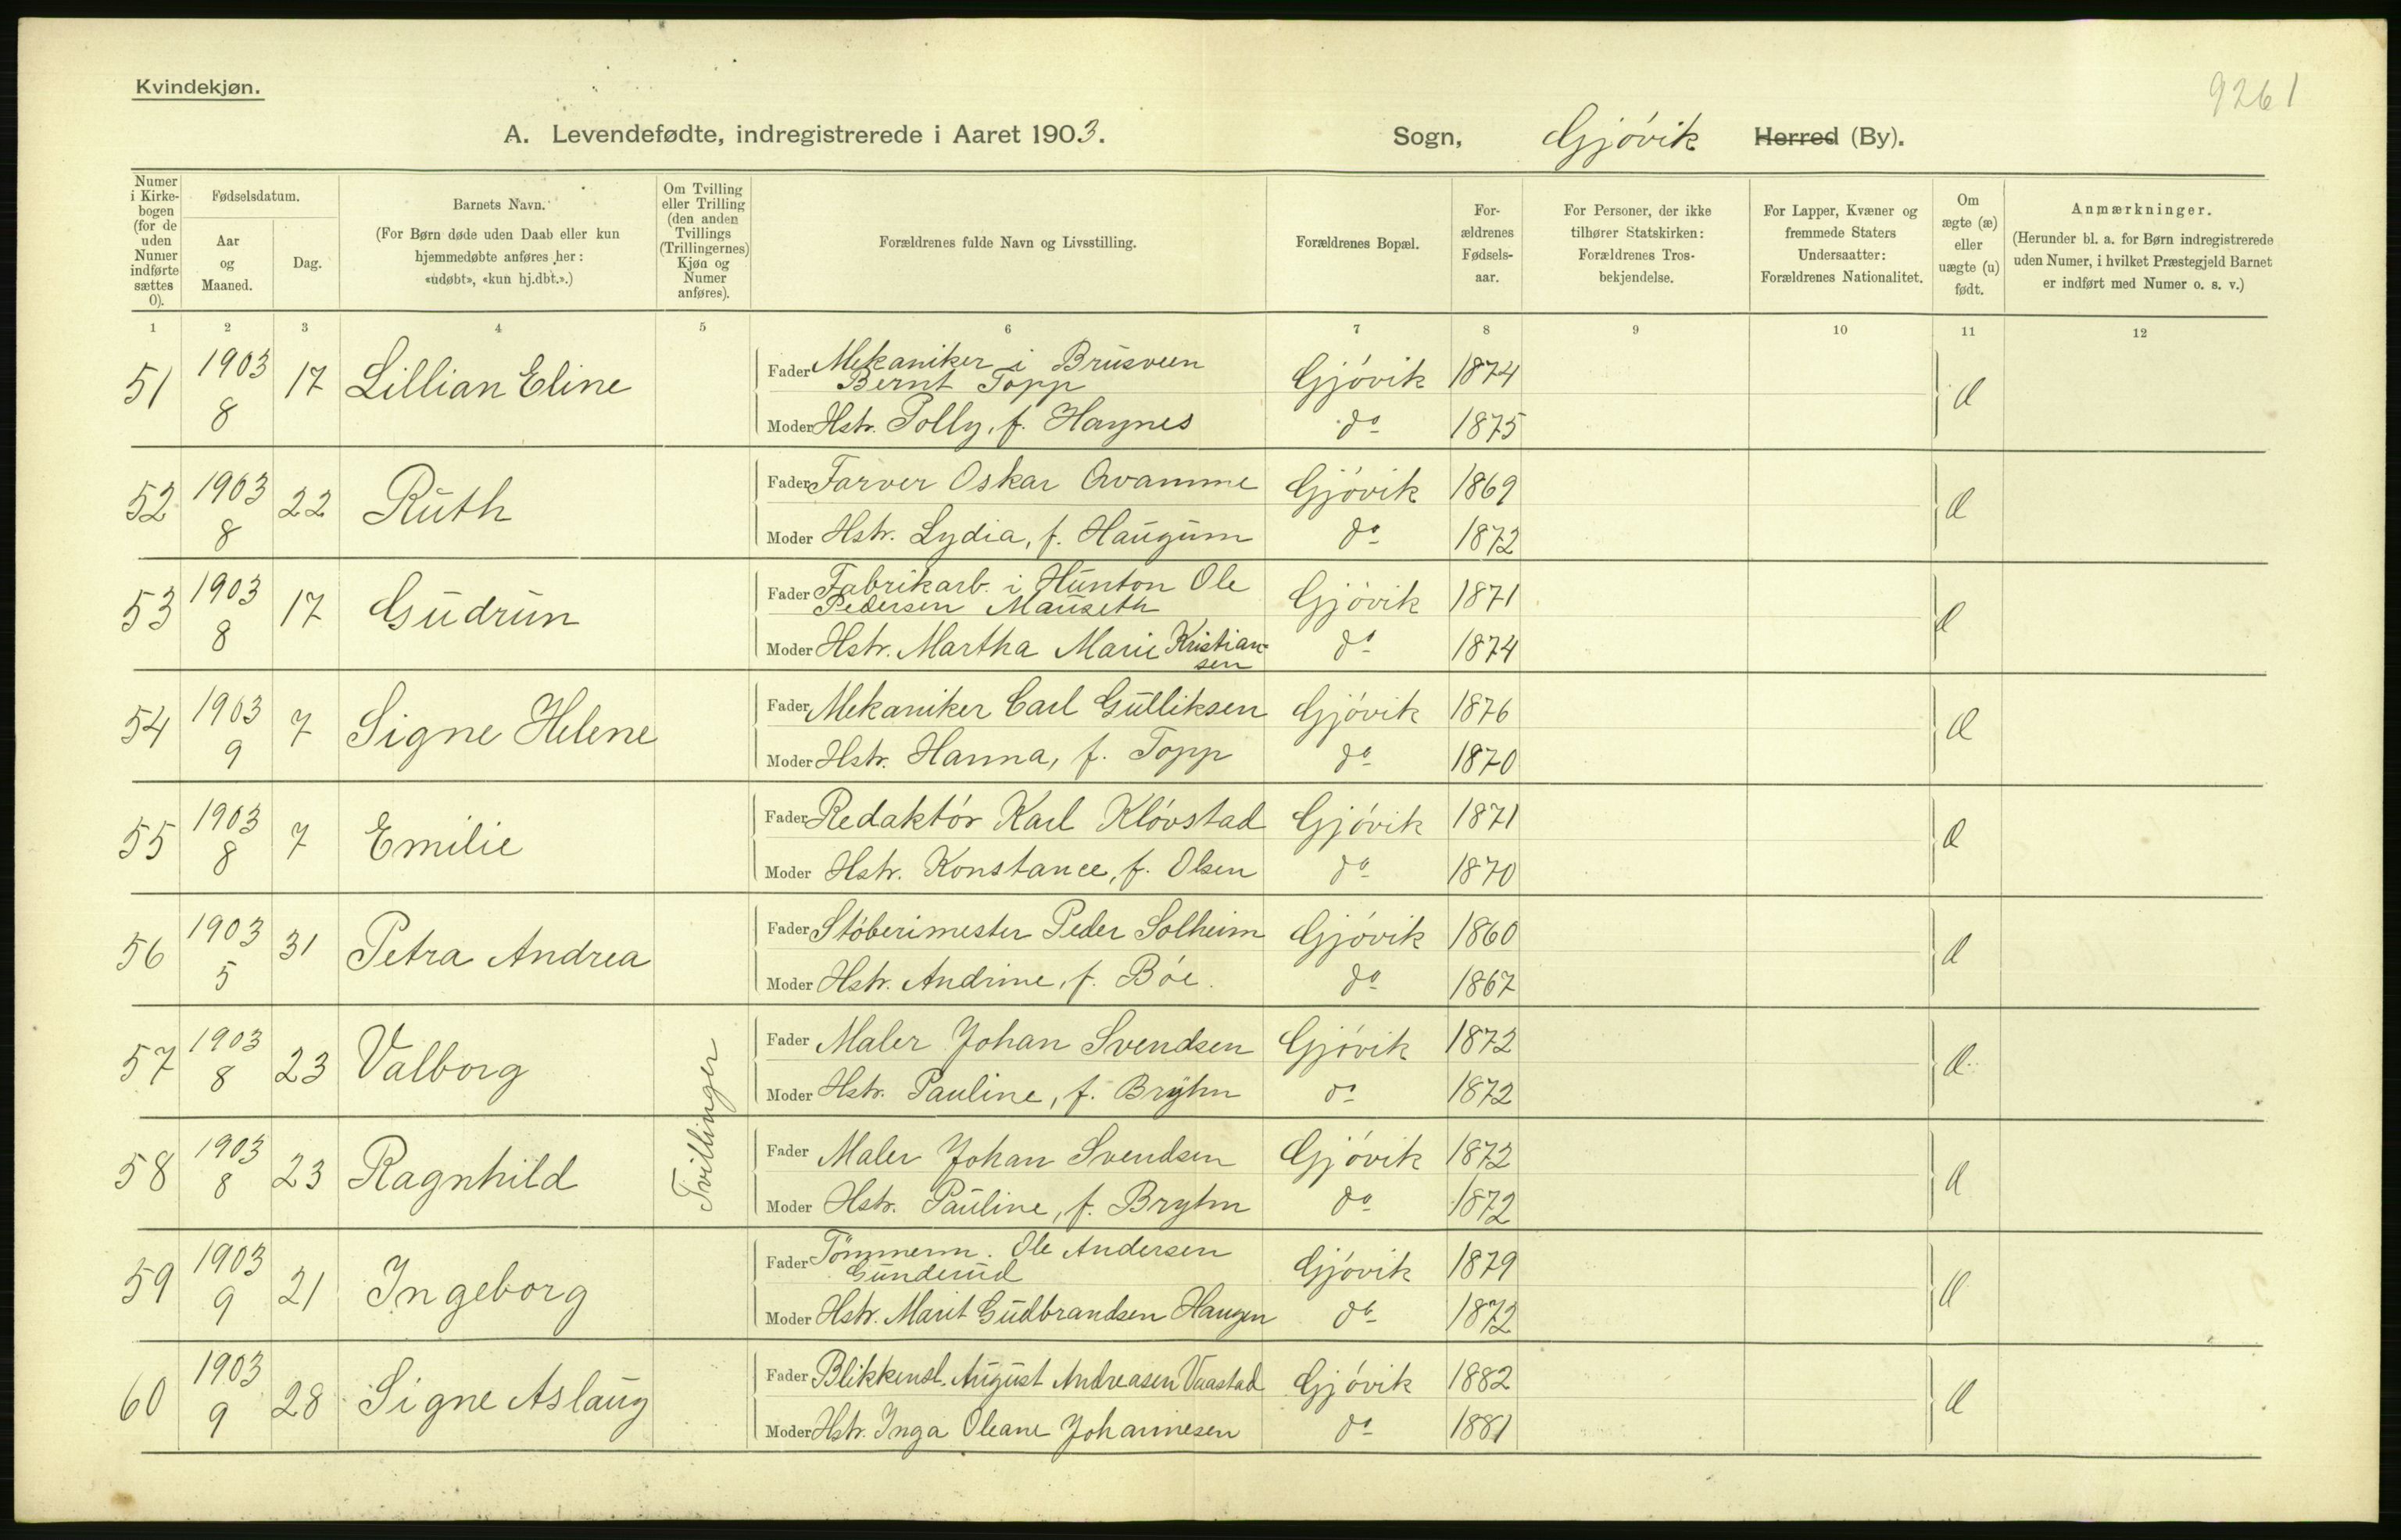 Kvindekjøn.
9261
A. Levendefødte, indregistrerede i Aaret 1903. Sogn, Gjövik Herred (By).
Numer i Kirke-bogen (for de uden Numer indførte sættes 0).
Fødselsdatum.
Aar og Maaned.
Dag.
Barnets Navn.
(For Børn døde uden Daab eller kun hjemmedøbte anføres her: «udøbt», «kun hj.dbt.».)
Om Tvilling eller Trilling (den anden Tvillings (Trillingernes) Kjøn og Numer anføres).
Forældrenes fulde Navn og Livsstilling.
Forældrenes Bopæl.
For-ældrenes Fødsels-aar.
For Personer, der ikke tilhører Statskirken: Forældrenes Tros-bekjendelse.
For Lapper, Kvæner og fremmede Staters Undersaatter: Forældrenes Nationalitet.
Om ægte (æ) eller uægte (u) født.
Anmærkninger.
(Herunder bl. a. for Børn indregistrerede uden Numer, i hvilket Præstegjeld Barnet er indført med Numer o. s. v.)
1 2 3 4 5 6 7 8 9 10 11 12
51 1903 8 17 Lillian Eline Fader Mekaniker i Brusveen Bernt Topp Gjövik 1874 Æ
Moder Hstr. Polly, f. Haynes do 1875
52 1903 8 22 Ruth Fader Farver Oskar Qvamme Gjövik 1869 Æ
Moder Hstr. Lydia, f. Haugum do 1872
53 1903 8 17 Gudrun Fader Fabrikarb. i Hunton Ole Pedersen Mauseth Gjövik 1871 Æ
Moder Hstr. Martha Marie Kristian-sen do 1874
54 1903 9 7 Signe Helene Fader Mekaniker Carl Gulliksen Gjövik 1876 Æ
Moder Hstr. Hanna, f. Topp do 1870
55 1903 8 7 Emilie Fader Redaktör Karl Klövstad Gjövik 1871 Æ
Moder Hstr. Konstance, f. Olsen do 1870
56 1903 5 31 Petra Andrea Fader Stöberimester Peder Solheim Gjövik 1860 Æ
Moder Hstr. Andrine, f. Böe. do 1867
57 1903 8 23 Valborg Tvillinger Fader Maler Johan Svendsen Gjövik 1872 Æ
Moder Hstr. Pauline, f. Bryhn do 1872
58 1903 8 23 Ragnhild Fader Maler Johan Svendsen Gjövik 1872 Æ
Moder Hstr. Pauline, f. Bryhn do 1872
59 1903 9 21 Ingeborg Fader Tömmerm. Ole Andersen Gunderud Gjövik 1879 Æ
Moder Hstr. Marit Gudbrandsen Haugen do 1872
60 1903 9 28 Signe Aslaug Fader Blikkensl. August Andreasen Vaastad Gjövik 1882 Æ
Moder Hstr. Inga Oleane Johannesen do 1881